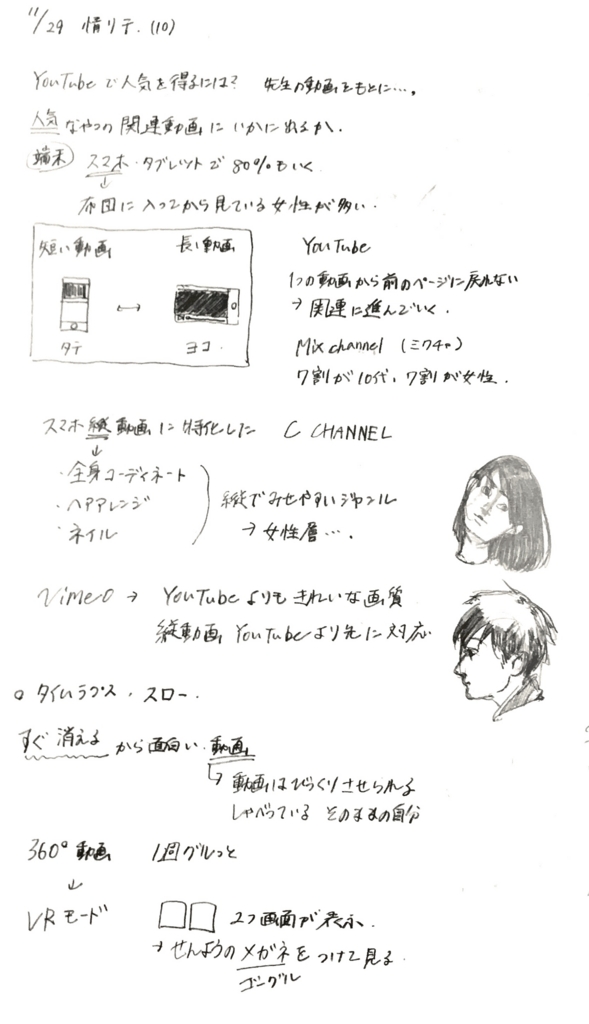 11/29 情リテ. (10)
YouTubeで人気を得るには? 先生の動画をもとに…。
人気なやつの関連動画にいかに出るか.
端末 スマホ・タブレットで80%もいく
↓
布団に入ってから見ている女性が多い.
短い動画 長い動画
↔
タテ ヨコ.
YouTube
1つの動画から前のページに戻れない
→ 関連に進んでいく.
Mix channel (ミクチャ)
7割が10代、7割が女性.
スマホ縦動画に特化した C CHANNEL
↓
・全身コーディネート
・ヘアアレンジ
・ネイル
縦でみせやすいジャンル
→ 女性層….
Vimeo → YouTubeよりもきれいな画質
縦動画 YouTubeより先に対応
○ タイムラプス、スロー.
すぐ消えるから面白い.動画
↳ 動画はびっくりさせられる
しゃべっている そのままの自分
360°動画 1週グルっと
↓
VRモード 2つ画面が表示.
→ せんようのメガネをつけて見る.
ゴーグル